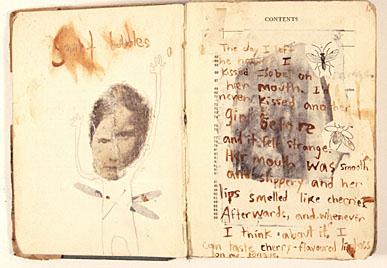 bubbles
CONTENTS
The day I left
I
kissed Isobel on
her mouth. I
never kissed another
girl before
and it felt strange.
Her mouth was smooth
and slippery and her
lips smelled like cherries
Afterwards, and whenever
I think about it, I
can taste cherry-flavoured lipgloss
on my